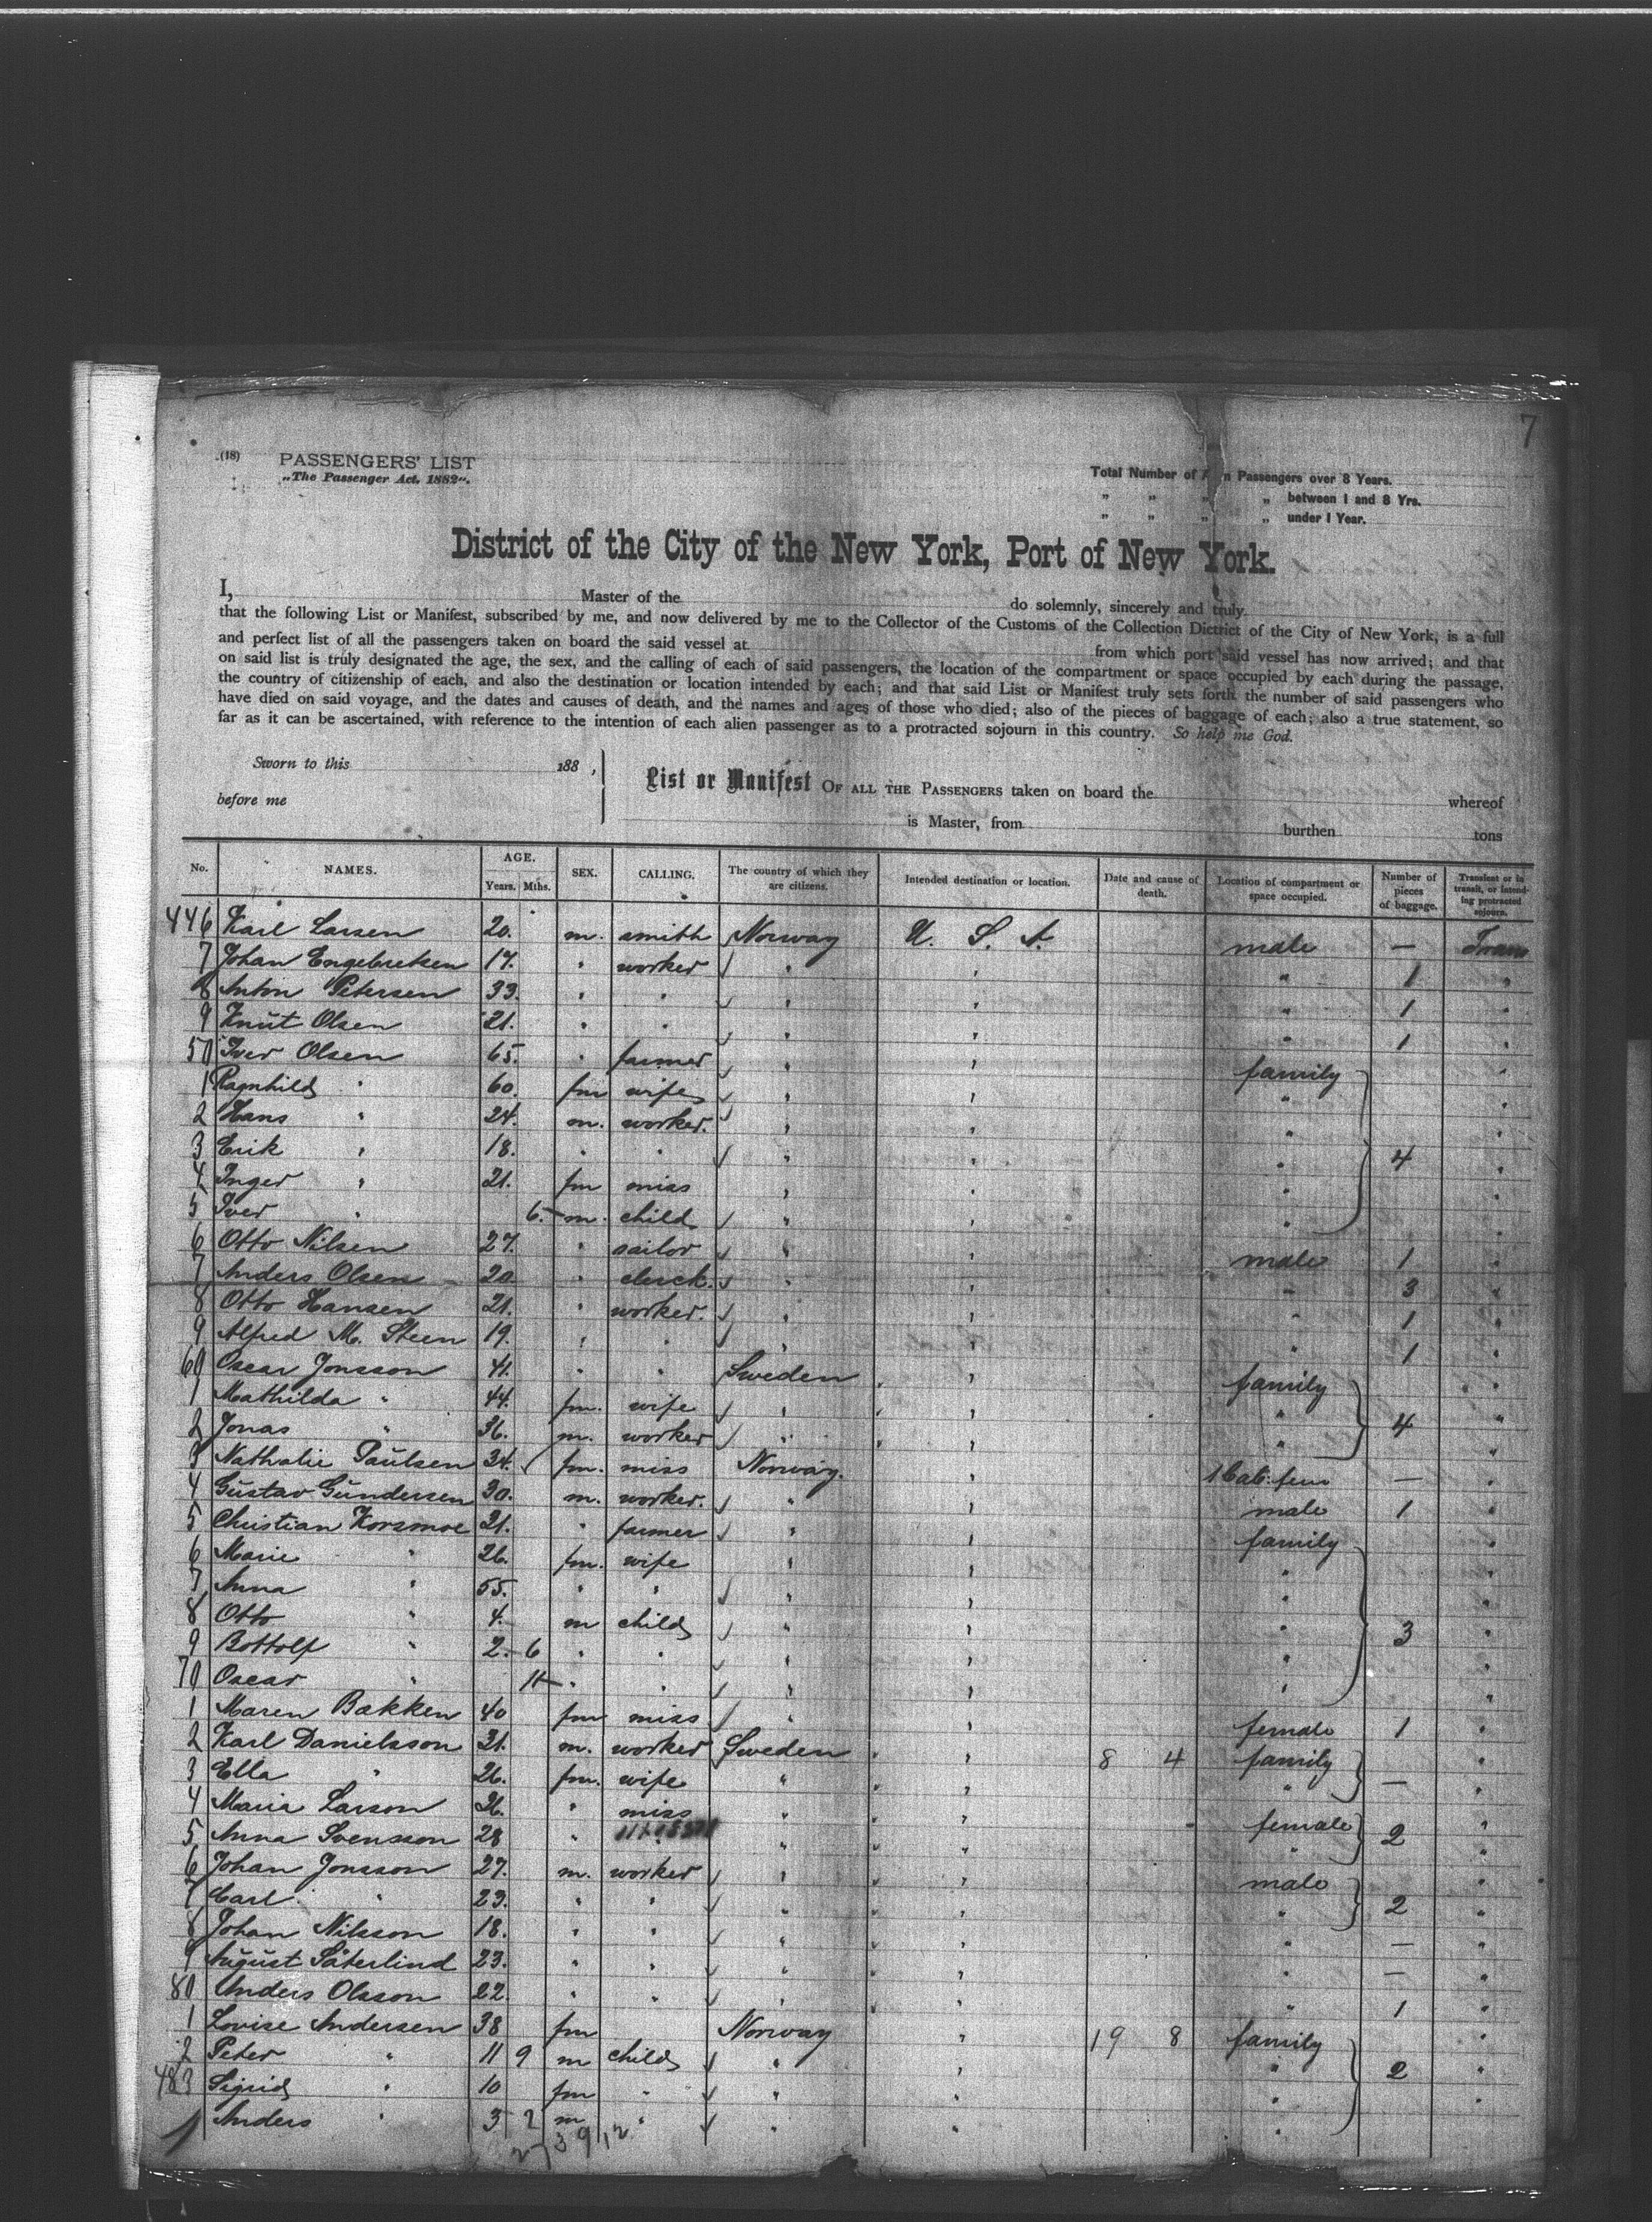 7
(18) PASSENGERS' LIST
„The Passenger Act, 1882".
Total Number of n Passengers over 8 Years.
„ „ „ „ between 1 and 8 Yrs.
„ „ „ „ under 1 Year.
District of the City of the New York, Port of New York.
I, Master of the do solemnly, sincerely and truly
that the following List or Manifest, subscribed by me, and now delivered by me to the Collector of the Customs of the Collection District of the City of New York, is a full
and perfect list of all the passengers taken on board the said vessel at from which port said vessel has now arrived; and that
on said list is truly designated the age, the sex, and the calling of each of said passengers, the location of the compartment or space occupied by each during the passage,
the country of citizenship of each, and also the destination or location intended by each; and that said List or Manifest truly sets forth the number of said passengers who
have died on said voyage, and the dates and causes of death, and the names and ages of those who died; also of the pieces of baggage of each; also a true statement, so
far as it can be ascertained, with reference to the intention of each alien passenger as to a protracted sojourn in this country. So help me God.
Sworn to this 188 ,
before me
List or Manifest OF ALL THE PASSENGERS taken on board the whereof
is Master, from burthen tons
No. NAMES. AGE. Years. Mths. SEX. CALLING. The country of which they are citizens. Intended destination or location. Date and cause of death. Location of compartment or space occupied. Number of pieces of baggage. Transient or in transit, or intending protracted sojourn.
446 Karl Larsen 20. m. smith Norway U. S. A. male — Tran
7 Johan Engebretsen 17. " worker " " " 1 "
8 Anton Petersen 33. " " " " " 1 "
9 Knut Olsen 21. " " " " " 1 "
50 Iver Olsen 65. " farmer " " family "
1 Ragnhild " 60. fm wife " " " "
2 Hans " 24. m. worker. " " " "
3 Erik " 18. " " " " " 4 "
4 Inger " 21. fm miss " " " "
5 Iver " 6. m. child " " " "
6 Otto Nilsen 27. " sailor " " male 1 "
7 Anders Olsen 20. " clerck. " " " 3 "
8 Otto Hansen 21. " worker. " " " 1 "
9 Alfred M. Steen 19. " " " " " 1 "
60 Oscar Jonsson 41. " " Sweden " family "
1 Mathilda " 44. fm. wife " " " "
2 Jonas " 36. m. worker " " " 4 "
3 Nathalie Paulsen 34. fm. miss Norway. " 1 Cab. fem — "
4 Gustav Gundersen 30. m. worker. " " male 1 "
5 Christian Korsmoe 21. " farmer " " family "
6 Marie " 26. fm. wife " " " "
7 Anna " 55. " " " " " "
8 Otto " 4. m child " " " 3 "
9 Bottolf " 2. 6 " " " " " "
70 Oscar " 11 " " " " " "
1 Maren Bakken 40 fm miss " " female 1 "
2 Karl Danielsson 31. m. worker Sweden " 8 4 family "
3 Ella " 26. fm. wife " " " — "
4 Maria Larson 26. " miss " " female "
5 Anna Svensson 28 " " " " 2 "
6 Johan Jonsson 27. m. worker " " male "
7 Carl " 23. " " " " " 2 "
8 Johan Nilsson 18. " " " " " — "
9 August Säterlind 23. " " " " " — "
80 Anders Olsson 22. " " " " " 1 "
1 Lovise Andersen 38 fm Norway " 19 8 family "
2 Peter " 11 9 m child " " " 2 "
483 Sigrid " 10 fm " " " " "
Anders " 3 2 m " " " " "
27 39 12